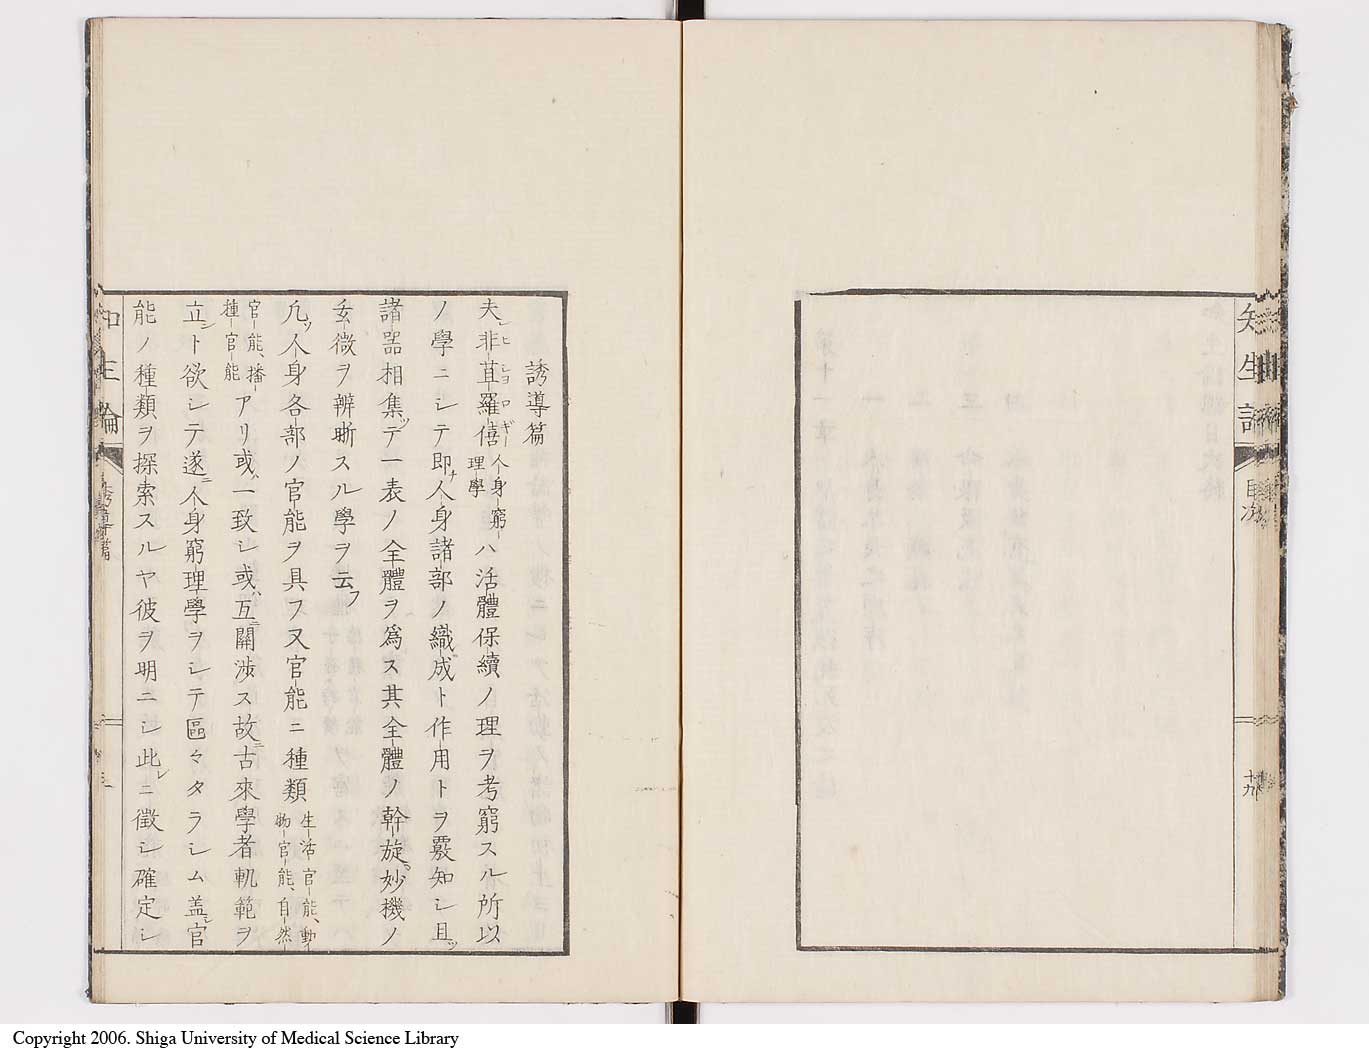 知生論
目次
十九
誘導篇
夫レ非苴羅僖人身窮理學ハ活體保續ノ理ヲ考窮スル所以
ノ學ニシテ即チ人身諸部ノ織成ト作用トヲ覈知シ且ツ
諸器相集テ一表ノ全體ヲ爲ス其全體ノ幹旋妙機ノ
玄微ヲ辨晰スル學ヲ云フ
凡ソ人身各部ノ官能ヲ具フ又官能ニ種類生活官能、動物官能、自然
官能、播種官能アリ或ハ一致シ或ハ互ニ關渉ス故ニ古來學者軌範ヲ
立ント欲シテ遂ニ人身窮理學ヲシテ區々タラシム盖シ官
能ノ種類ヲ探索スルヤ彼ヲ明ニシ此レニ徴シ確定シ
知生論
誘導篇
Copyright 2006. Shiga University of Medical Science Library